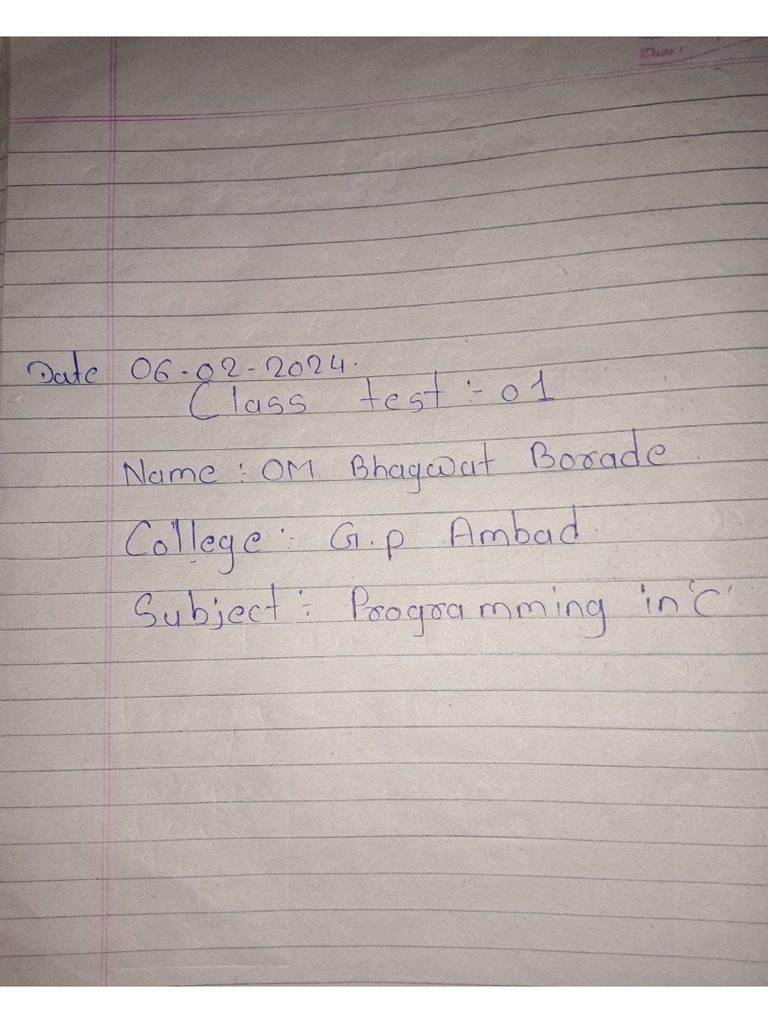 Date:
Date 06-02-2024.
Class test :- 01
Name : OM Bhagwat Borade.
College :- G.p Ambad.
Subject :- Programming in 'C'